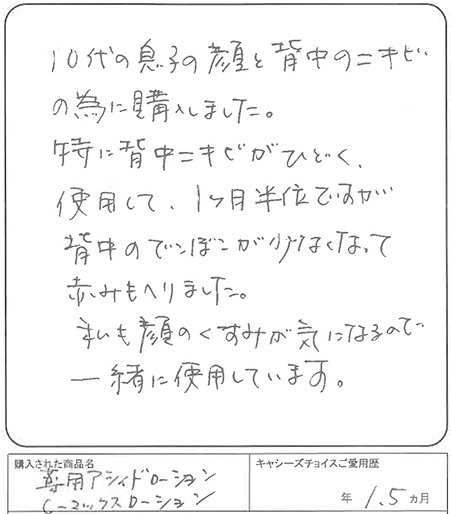 10代の息子の顔と背中のニキビ
の為に購入しました。
特に背中ニキビがひどく、
使用して、1ヶ月半位ですが
背中のでこぼこが少なくなって
赤みもへりました。
私も顔のくすみが気になるので
一緒に使用しています。
購入された商品名
薬用アシィドローション
C-マックスローション
キャシーズチョイスご愛用歴
年 1.5 カ月